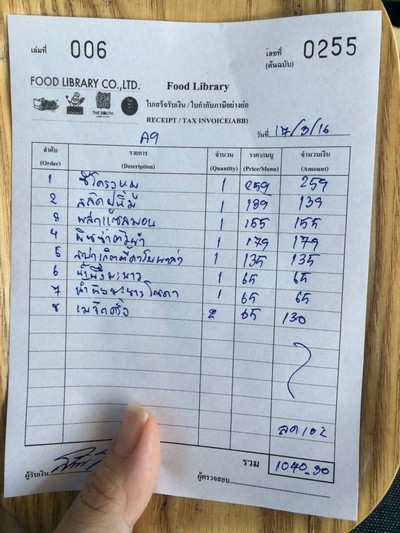 เล่มที่ 006
เลขที่ 0255
(ต้นฉบับ)
FOOD LIBRARY CO.,LTD.
Food Library
THE SOUTH
ใบเสร็จรับเงิน / ใบกำกับภาษีอย่างย่อ
RECEIPT / TAX INVOICE(ABB)
A9
วันที่ 17/3/16
ลำดับ รายการ จำนวน ราคาเมนู จำนวนเงิน
(Order) (Description) (Quantity) (Price/Menu) (Amount)
1 ซีโครงหมู 1 259 259
2 สลัดปูนิ่ม 1 139 139
3 พล่าแซลมอน 1 155 155
4 1 179 179
5 1 135 135
6 น้ำผึ้งมะนาว 1 65 65
7 น้ำผึ้งมะนาวโซดา 1 65 65
8 2 65 130
ลด 10%
รวม 1040.30
ผู้รับเงิน
ผู้ตรวจสอบ